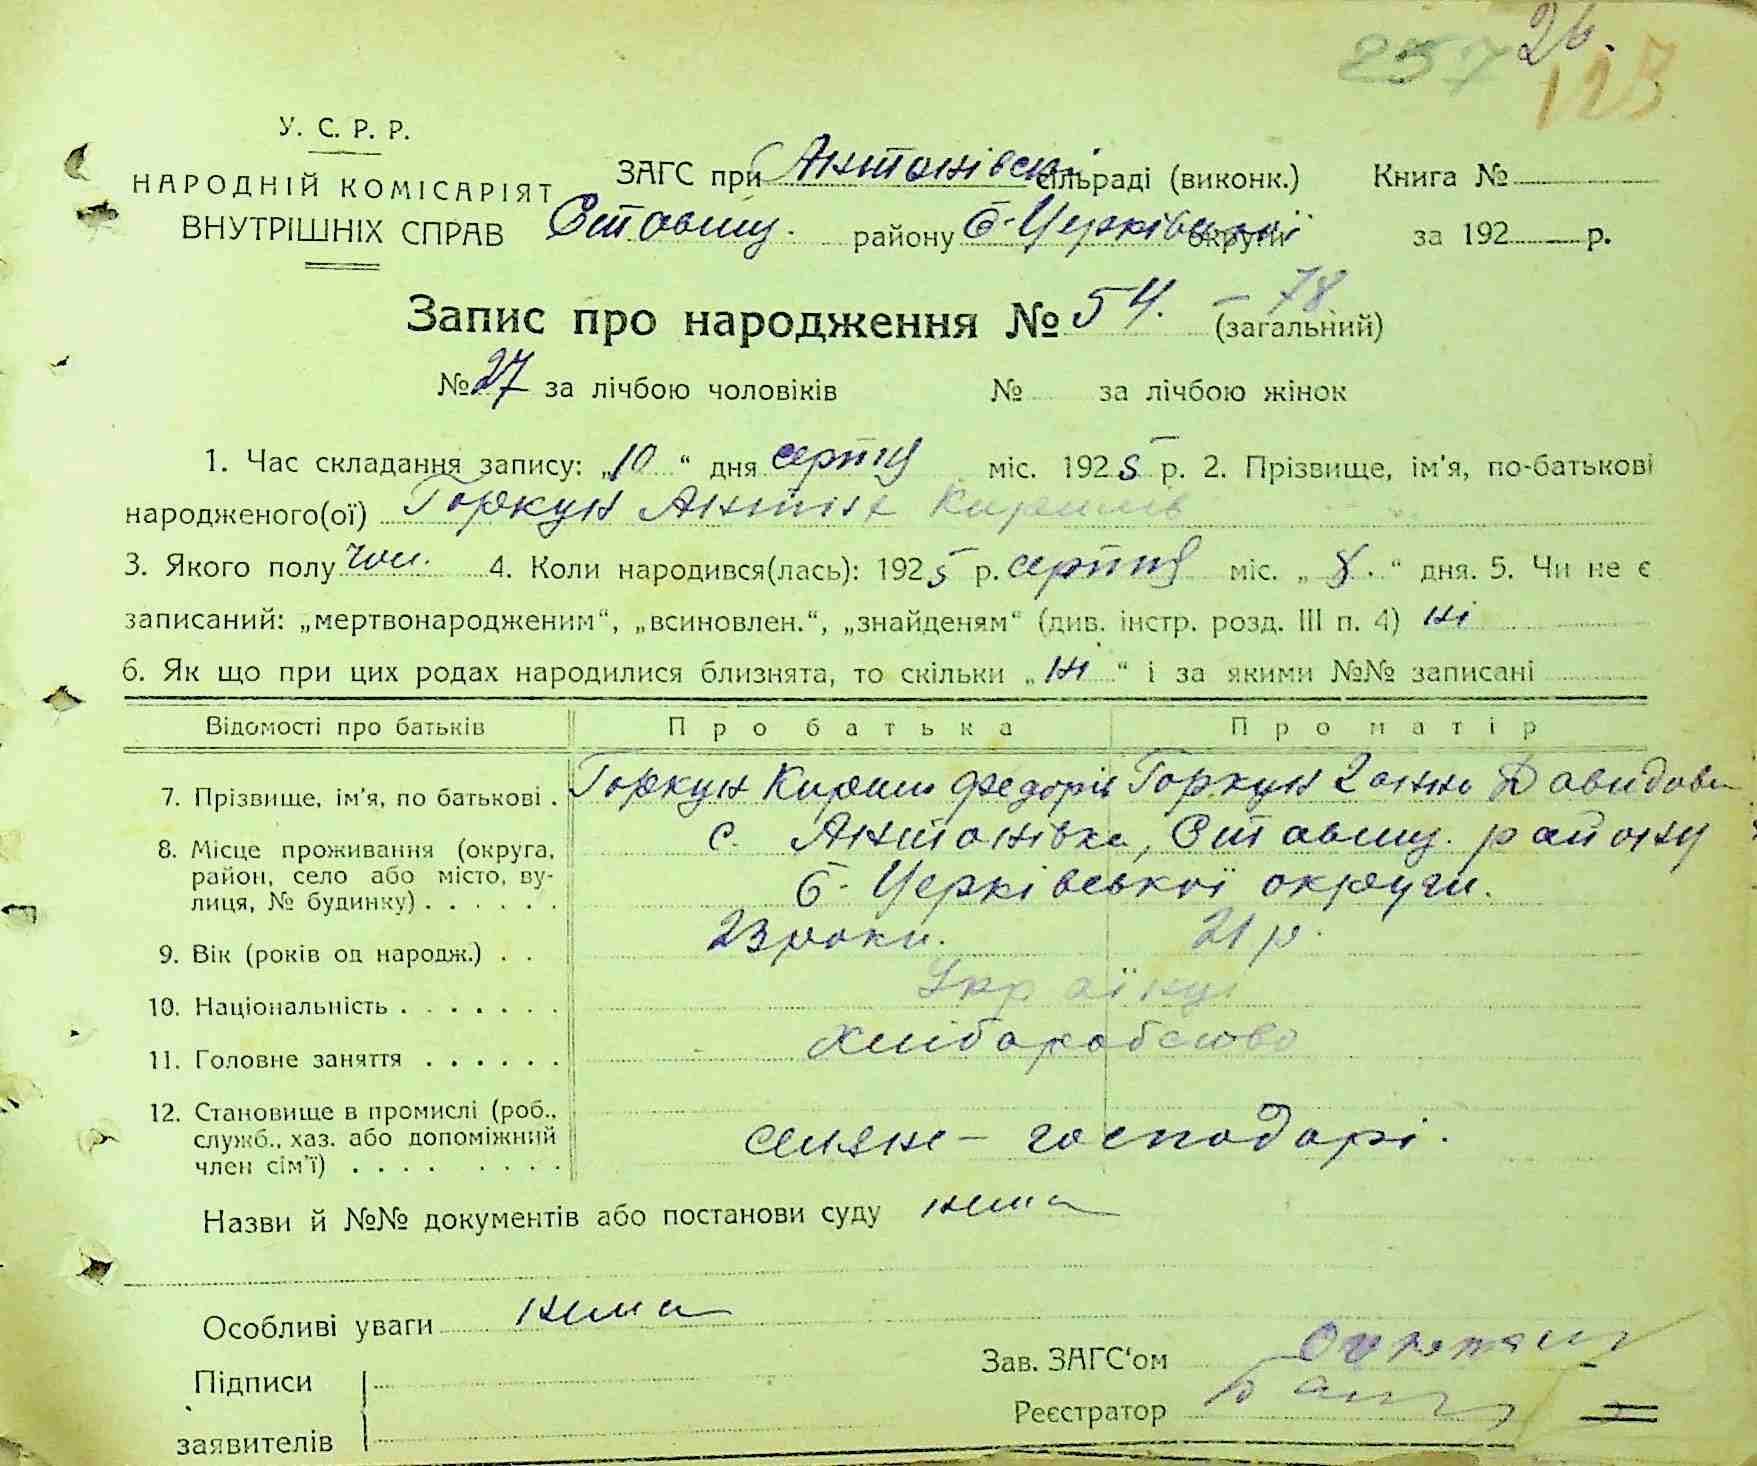 257 26.
123
У. С. Р. Р.
НАРОДНІЙ КОМІСАРІЯТ
ВНУТРІШНІХ СПРАВ
ЗАГС при Антонівській сільраді (виконк.) Книга №
Ставищ. району Б-Церківської округи за 192 р.
Запис про народження № 54. – 78 (загальний)
№ 27 за лічбою чоловіків № за лічбою жінок
1. Час складання запису: „10“ дня серпня міс. 1925 р. 2. Прізвище, ім'я, по-батькові
народженого(ої) Горкун Антін Кирилів
3. Якого полу чол. 4. Коли народився(лась): 1925 р. серпня міс. „8.“ дня. 5. Чи не є
записаний: „мертвонародженим“, „всиновлен.“, „знайденям“ (див. інстр. розд. III п. 4) ні
6. Як що при цих родах народилися близнята, то скільки „ні“ і за якими №№ записані
Відомості про батьків Про батька Про матір
7. Прізвище, ім'я, по батькові . Горкун Кирило Федорів Горкун Ганна Давидова
8. Місце проживання (округа, район, село або місто, вулиця, № будинку) . . . . . . с. Антонівка, Ставищ. району
Б-Церківської округи.
9. Вік (років од народж.) . . 23 роки. 21 р.
10. Національність . . . . . . . Українці
11. Головне заняття . . . . . . Хліборобство
12. Становище в промислі (роб., служб., хаз. або допоміжний член сім'ї) . . . . . . . . селяне – господарі.
Назви й №№ документів або постанови суду нема
Особливі уваги нема
Зав. ЗАГС'ом
Підписи
Реєстратор
заявителів